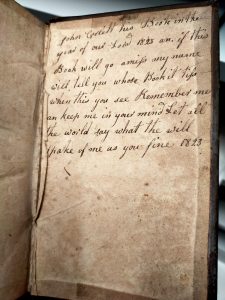 John his Book in the
year of our Lord 1823 an. If this
Book will go amiss my name
will tell you whose Book it
when this you see Remember me
an keep me in your mind Let all
he world say what the will
of me as you fine 1823